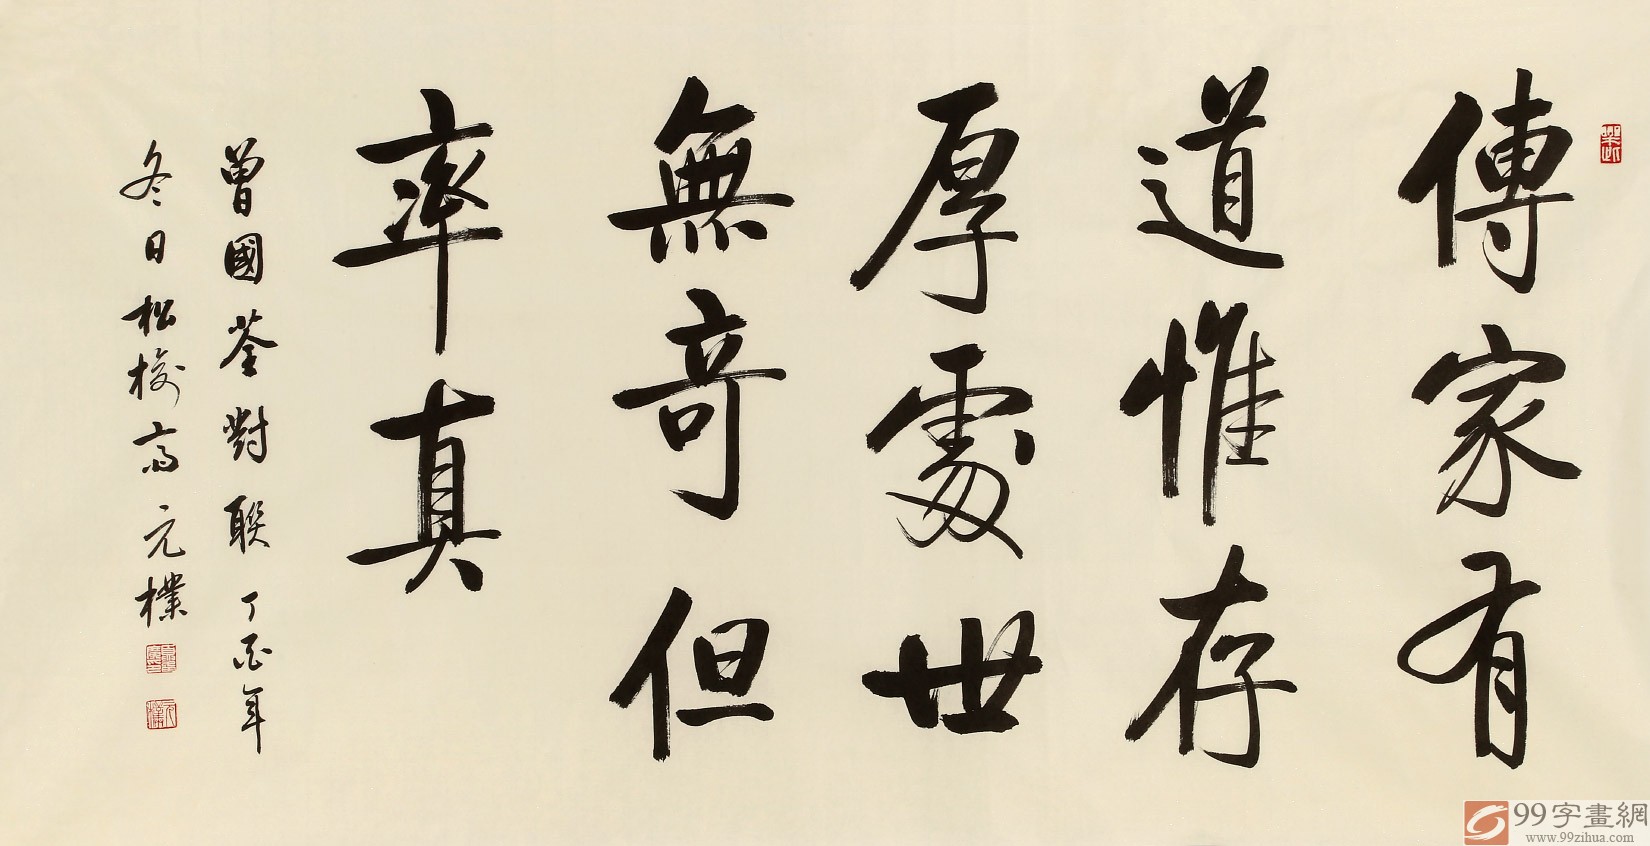 傳家有
道惟存
厚處世
無奇但
率真
曾國荃對聯丁酉年
冬日松梅齋元樸
99字畫網
www.99zihua.com